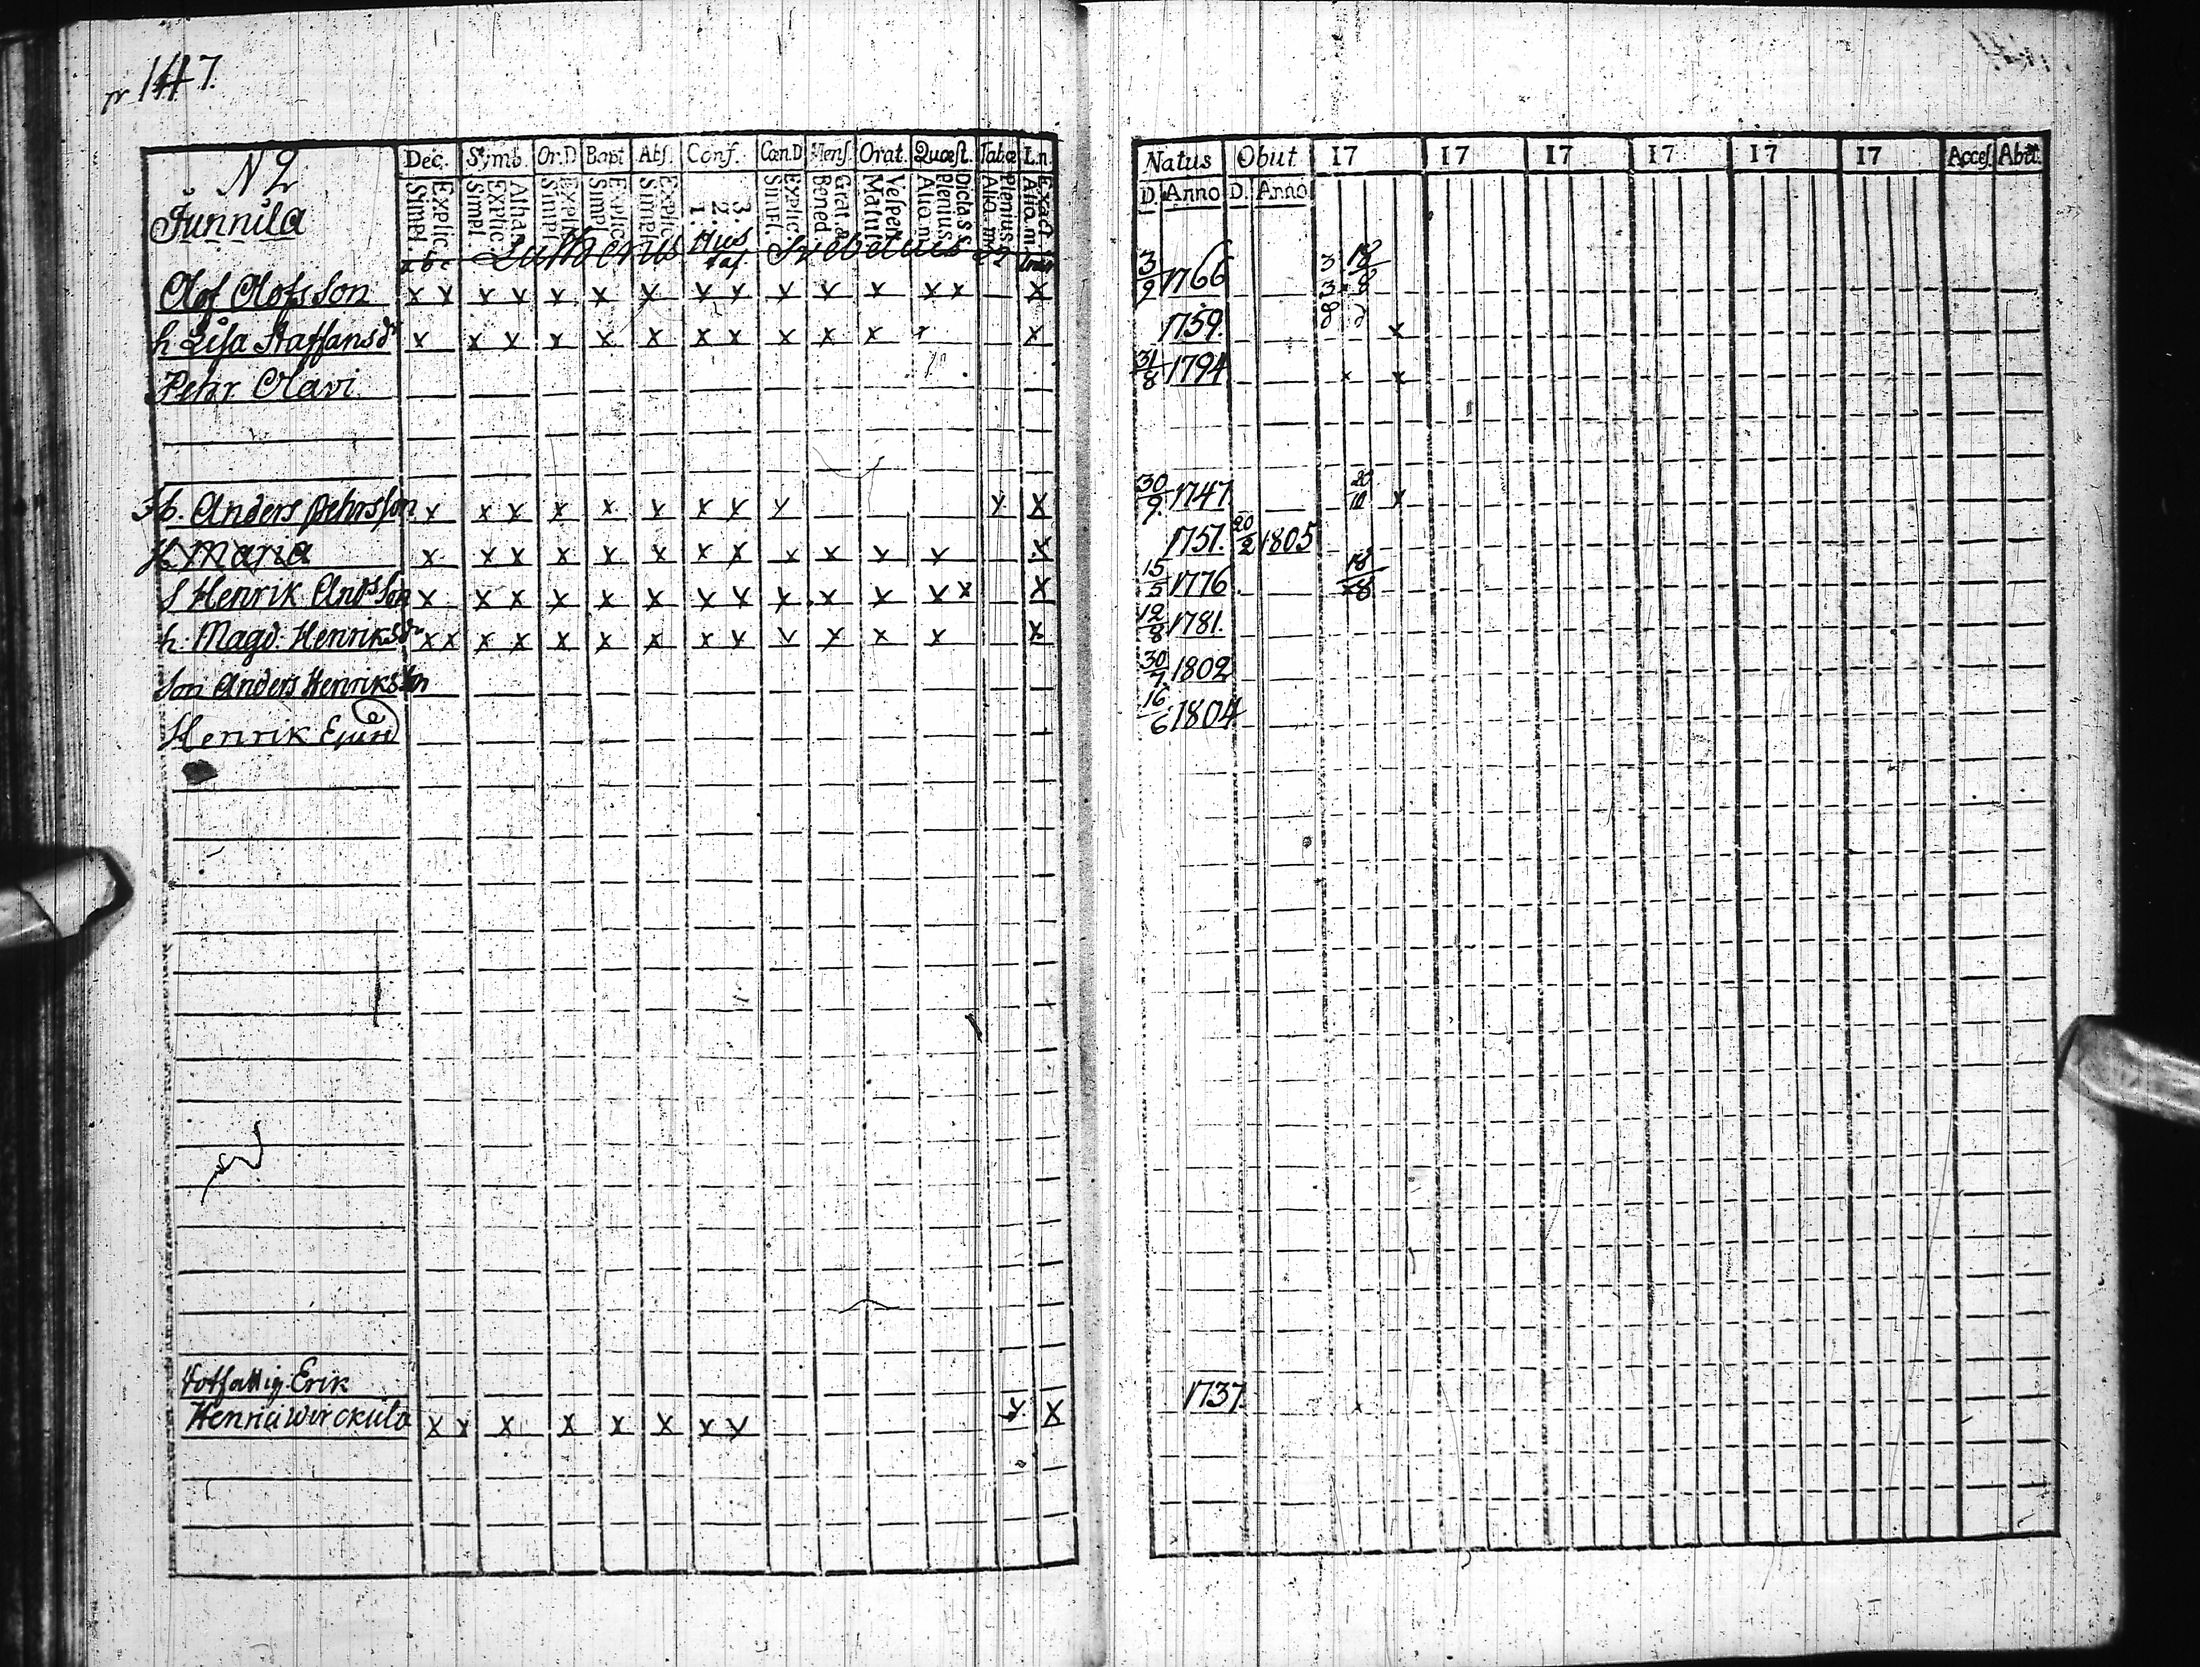 147.
N 2
Junnila
Dec. Symb. Or.D Bapt Abs. Conf. Cœn.D Mens. Orat. Quæst. Tabœ L.n.
Simpl. Explic. Simpl. Explic. Athan Simpl. Explic. Simpl. Explic. Simpl. Explic. 1. 2. 3. Simpl. Explic. Bened. Grat.a Matut Vesper Alio.m Plenius Dicta S.S. Alio.m Plenius Alio.m. Exact.
a b c Lutherus Hus taf Svebelius
Natus Obiit 17 17 17 17 17 17 Acces. Abit.
D. Anno D. Anno
Olof Olofsson x x x x x x x x x x x x x x x 3/9 1766 3 18/8
h Lisa Staffansdr x x x x x x x x x x x x x 1759. x
Pehr Olavi 31/8 1794 x x
Anders Pehrsson x x x x x x x x x x x 30/9 1747 x
H Maria x x x x x x x x x x x x x 1751. 20/2 1805
S Henrik Andsson x x x x x x x x x x x x x x 15/5 1776
h. Magd. Henriksdr x x x x x x x x x x x x x x 12/8 1781.
Son Anders Henriksson 30/7 1802
Henrik 16/6 1804
Erik
Henrici Wirckula x x x x x x x x x x 1737. x